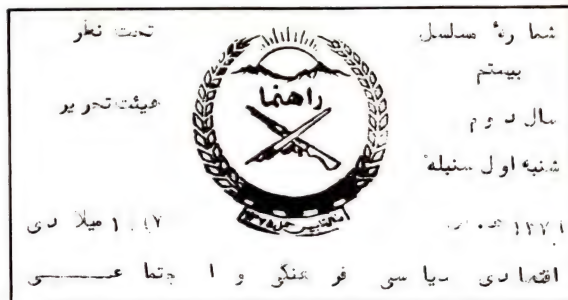 شماره مسلسل
بیستم
سال دوم
شنبه اول سنبله
تحت نظر
هیئت تحریر
راهنما
میلادی
اقتصادی سیاسی فرهنگی و اجتماعی